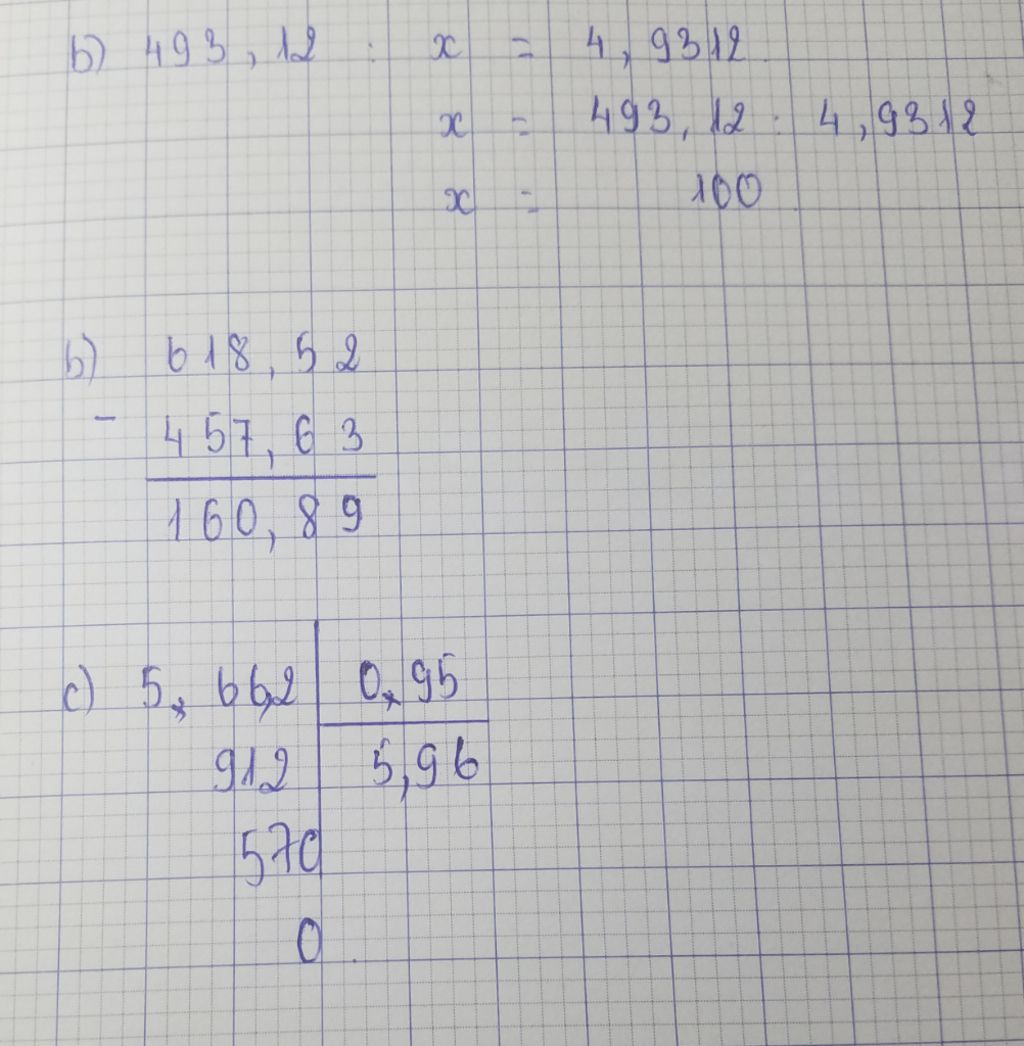 b) 493,12 : x = 4,9312
x = 493,12 : 4,9312
x = 100
b) 618,52
- 457,63
160,89
c) 5,66,2 0,95
912 5,96
570
0